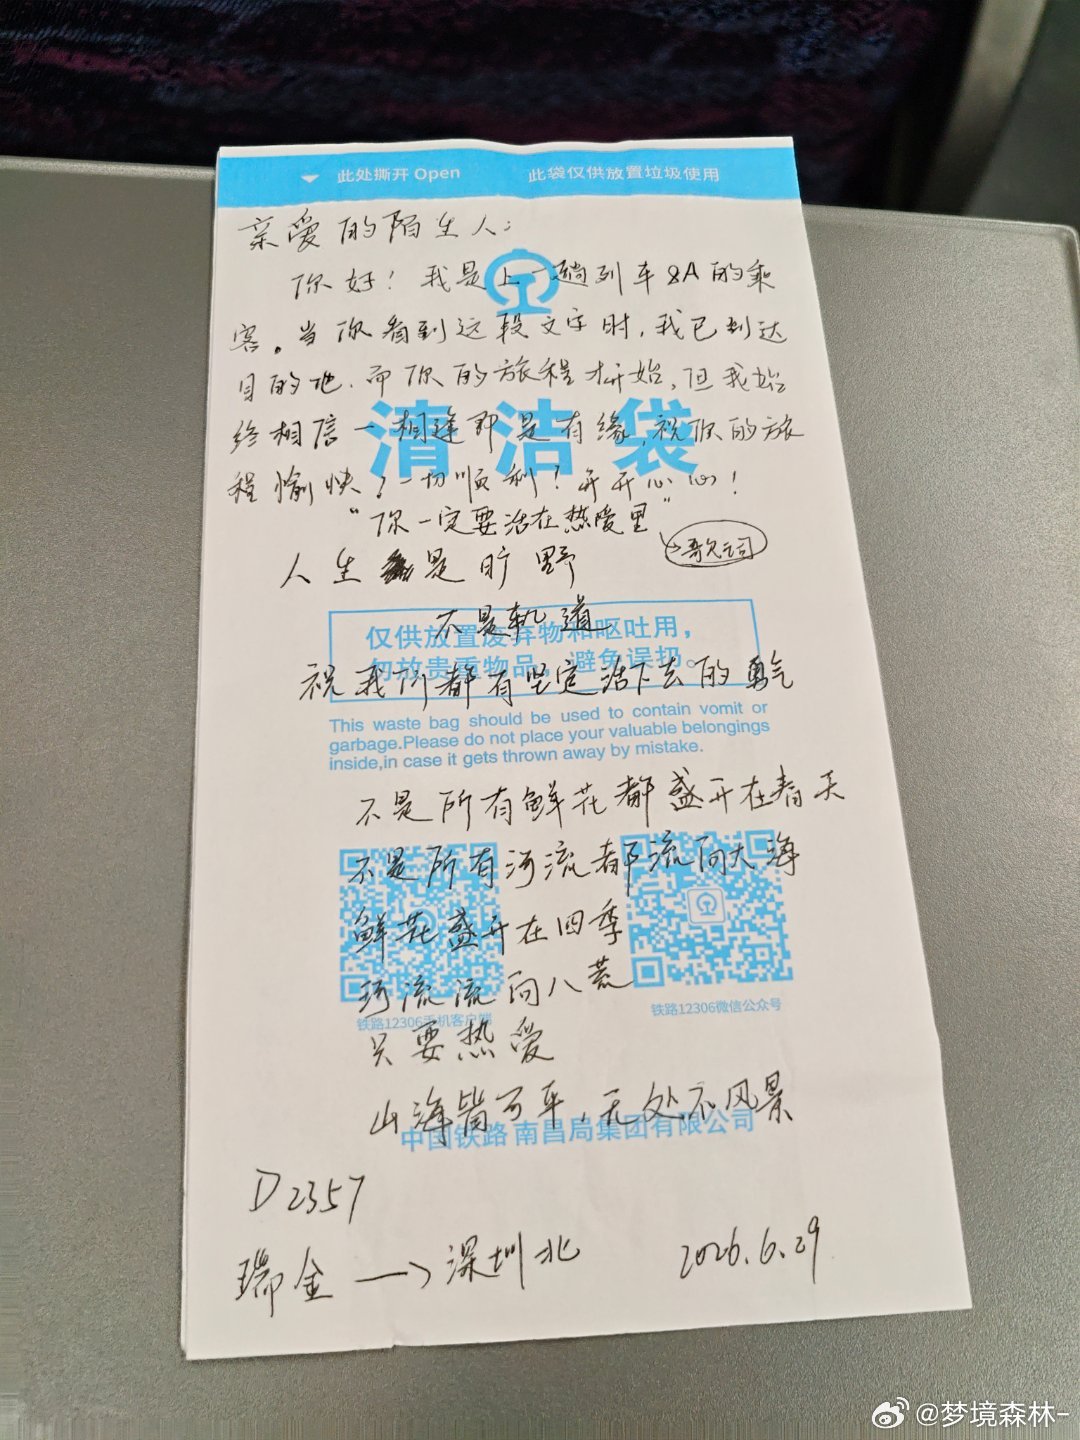 此处撕开 Open 此袋仅供放置垃圾使用
亲爱的陌生人：
你好！我是上一趟列车8A的乘
客。当你看到这段文字时，我已到达
目的地，而你的旅程才开始，但我始
终相信一相逢即是有缘，祝你的旅
程愉快，一切顺利！开开心心！
清洁袋
“你一定要活在热爱里”
→歌词
人生是旷野
不是轨道
仅供放置废弃物和呕吐用，
勿放贵重物品，避免误扔。
祝我们都有坚定活下去的勇气
This waste bag should be used to contain vomit or
garbage.Please do not place your valuable belongings
inside,in case it gets thrown away by mistake.
不是所有鲜花都盛开在春天
不是所有河流都流向大海
鲜花盛开在四季
河流流向八荒
铁路12306手机客户端 铁路12306微信公众号
只要热爱
山海皆可平，无处不风景
中国铁路南昌局集团有限公司
D2357
瑞金 → 深圳北 2026.6.29
@梦境森林-